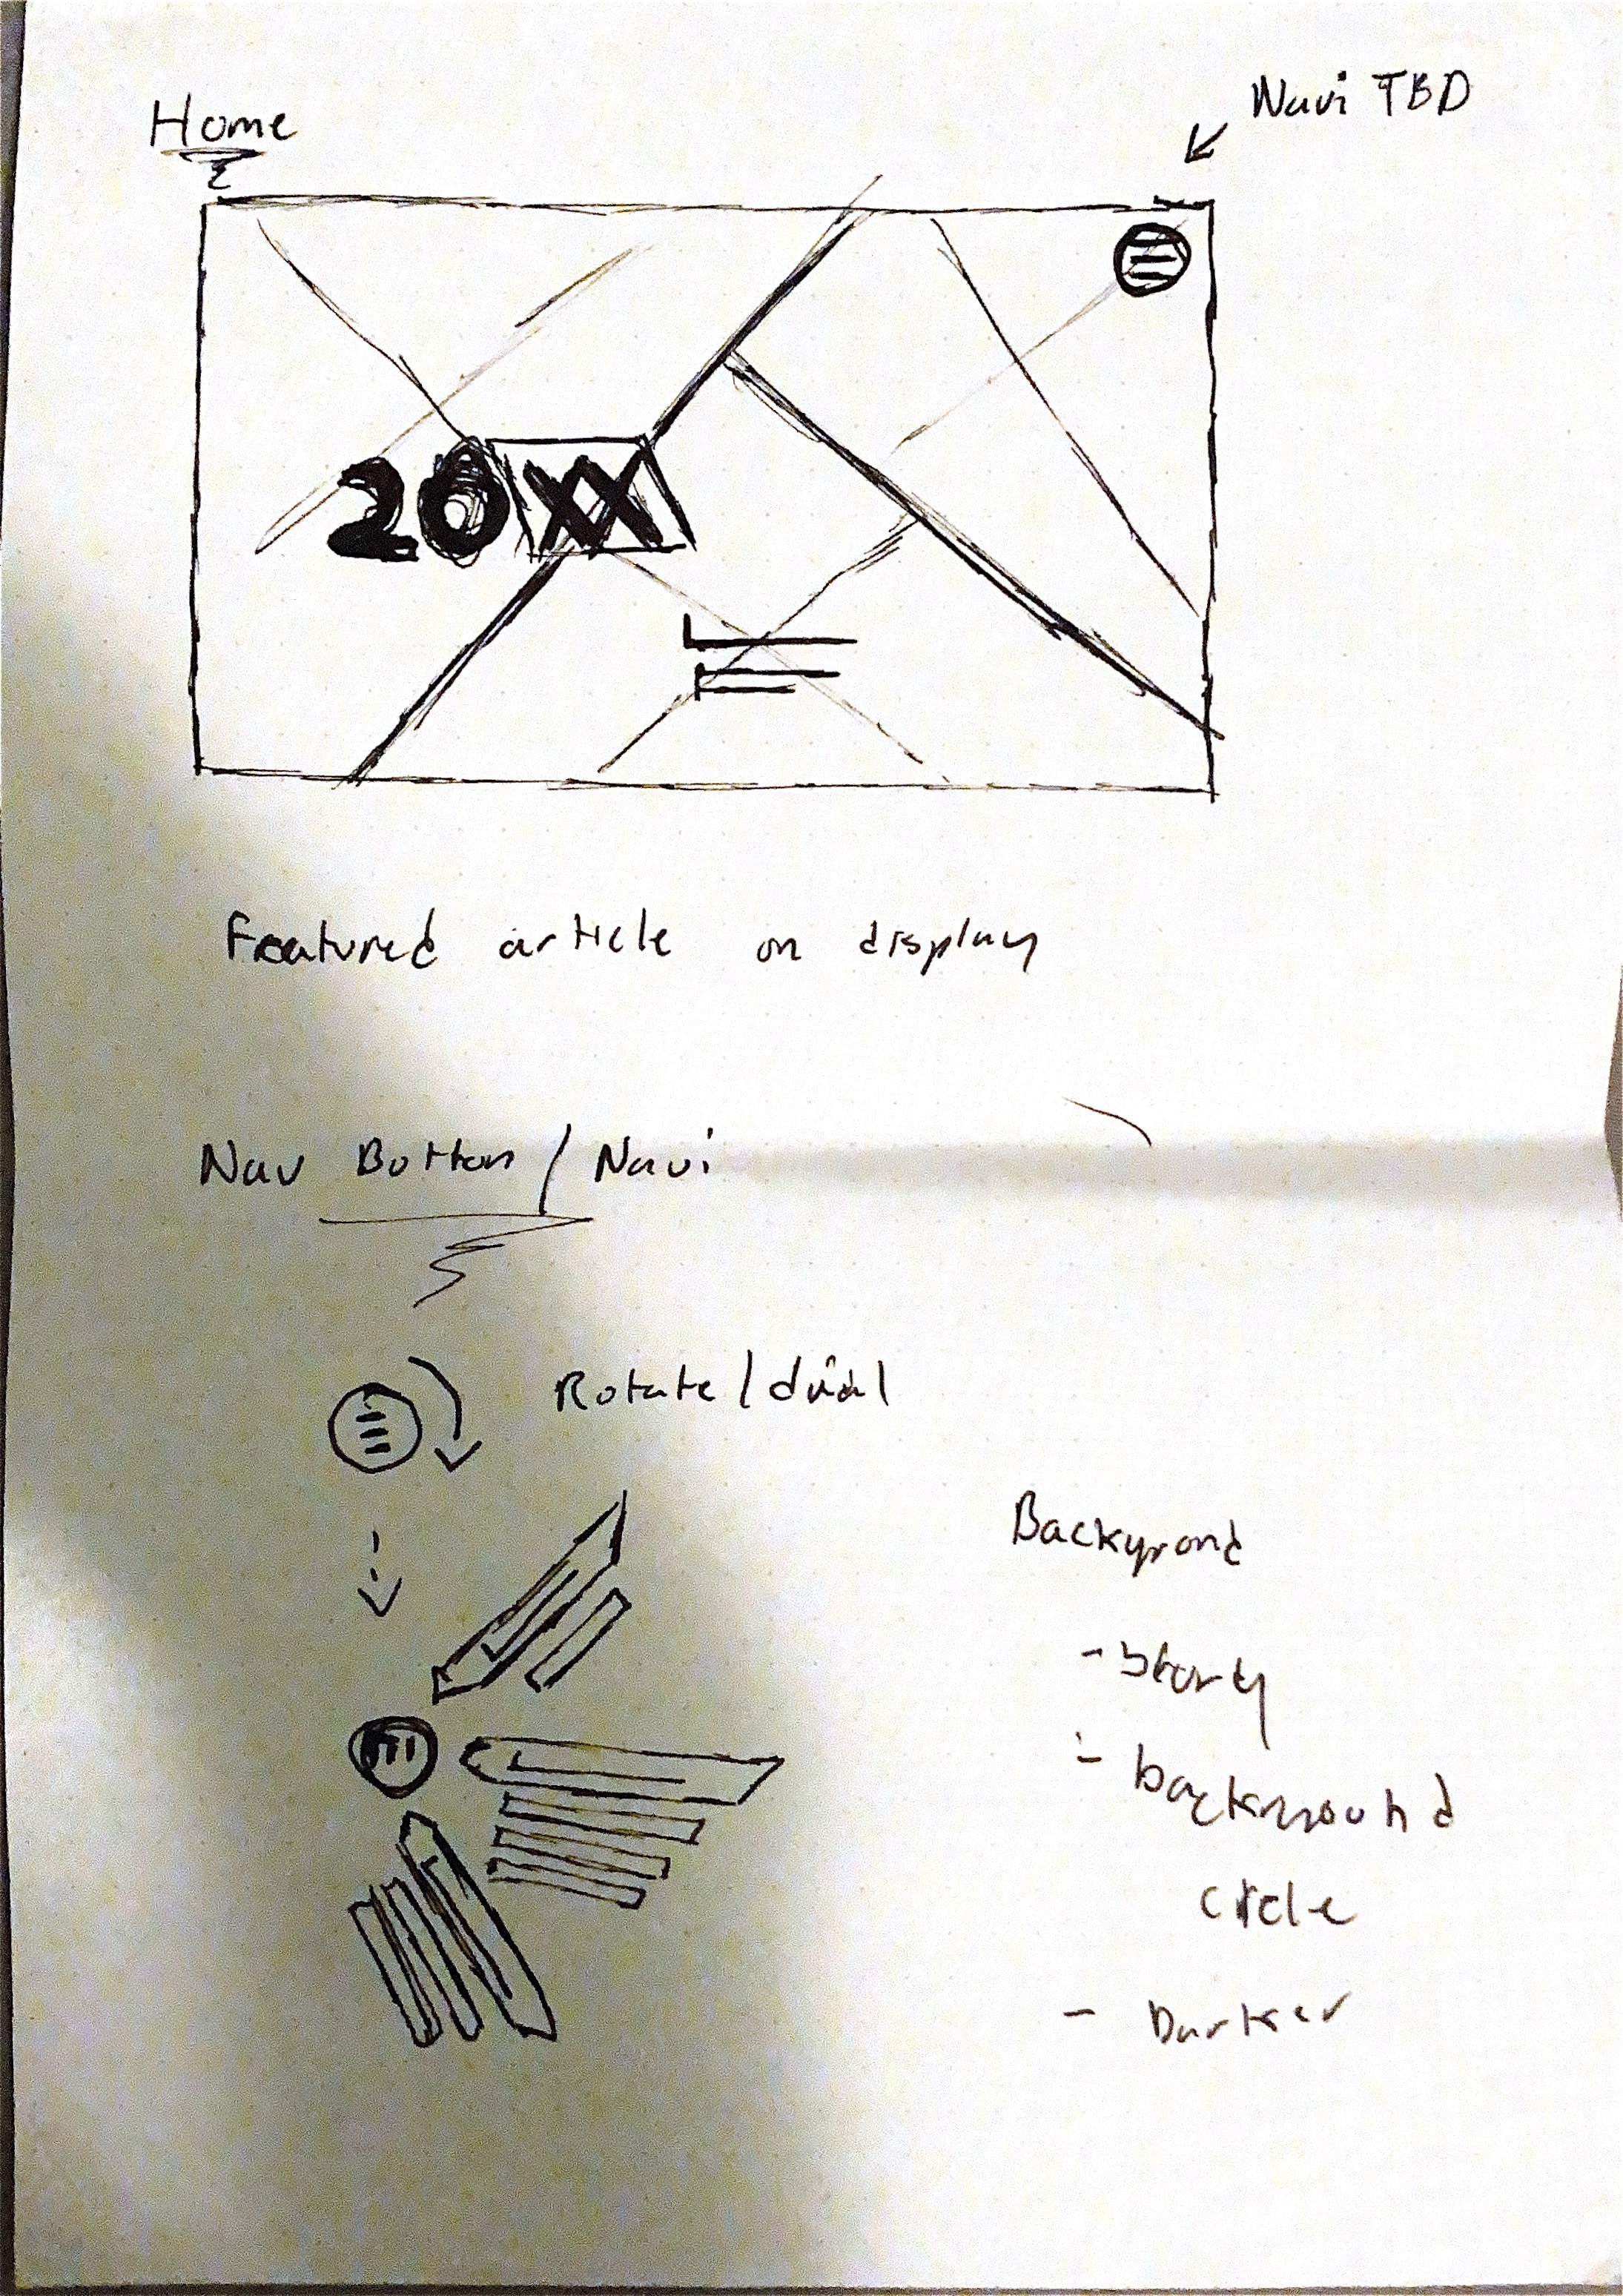 Home
Navi TBD
20XX
Featured article on display
Nav Button / Navi
Rotate / dial
Backgrond
- story
- background
circle
- Darker